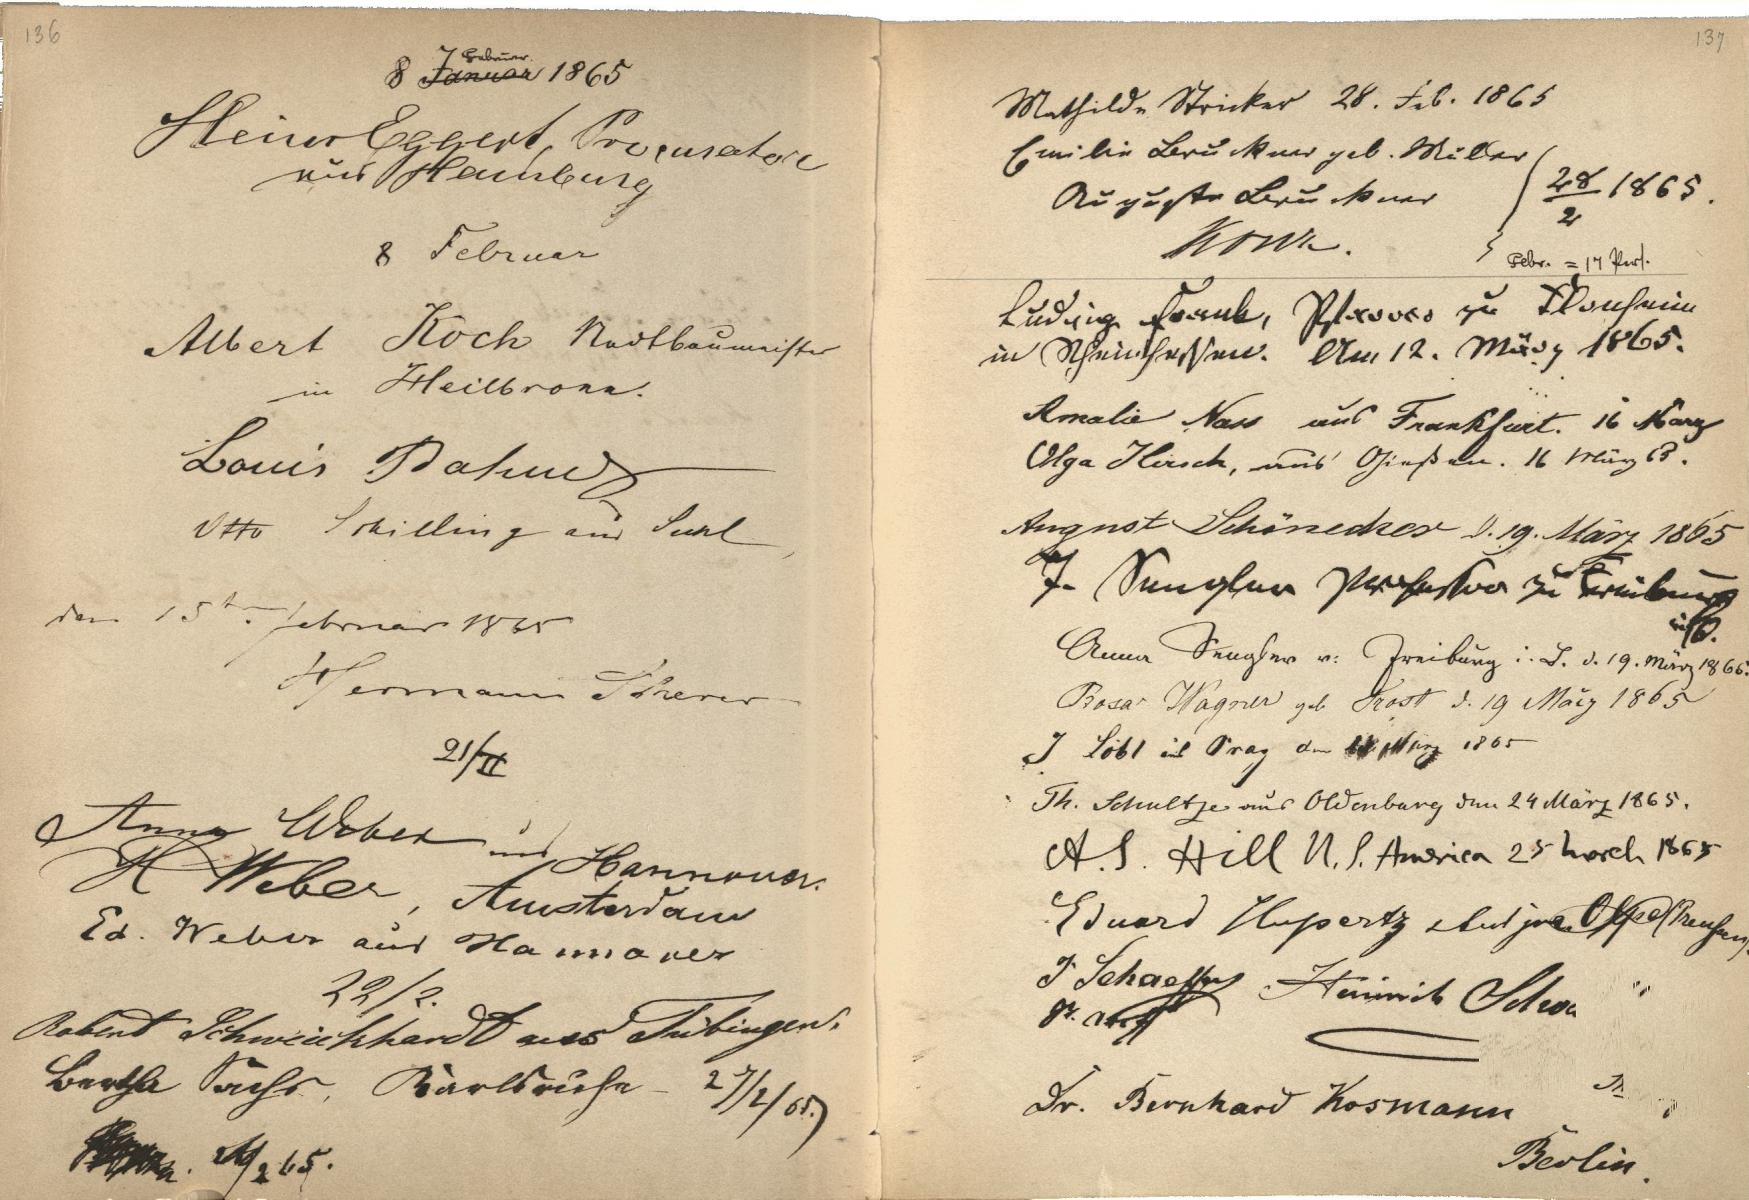 136
7 Februar
8 Januar 1865
Heinr Eggert, Procurator
aus Hamburg
8 Februar
Albert Koch Stadtbaumeister
in Heilbronn.
Louis
Otto Schilling aus Suhl
den 15ten Februar 1865
Hermann Scherer
21/II
Anna Weber aus Hannover.
H Weber, Amsterdam
Ed. Weber aus Hannover
22/2.
Robert Schweickhardt aus Tübingen.
Bertha Sachs, Karlsruhe 27/2/65.
65.
137
Mathilde Stricker 28. Feb. 1865
Emilie Bruckner geb. Müller
Auguste Bruckner
28/2 1865.
Febr. = 17 Pers.
Ludwig Frank, Pfarrer zu Flonheim
in Rheinhessen. Am 12. März 1865.
Amalie Nass aus Frankfurt. 16 März
Olga Hirsch, aus Gießen. 16 März 65.
August Schönecker d. 19. März 1865
J. Sengler Professor zu Freiburg
i/B.
Anna Sengler v. Freiburg i. B. d. 19. März 1865.
Rosa Wagner geb Trost d. 19 März 1865
J Löbl aus Prag den März 1865
Th. Schultze aus Oldenburg den 24 März 1865.
A. S. Hill U. S. America 25 March 1865
Eduard Hupertz aus Preußen
J Schaeffer Heinrich
Dr. Bernhard Kosmann
Berlin.